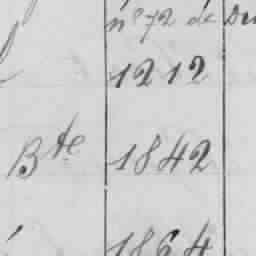 n° 72 de
1212
Bte 1842
1864